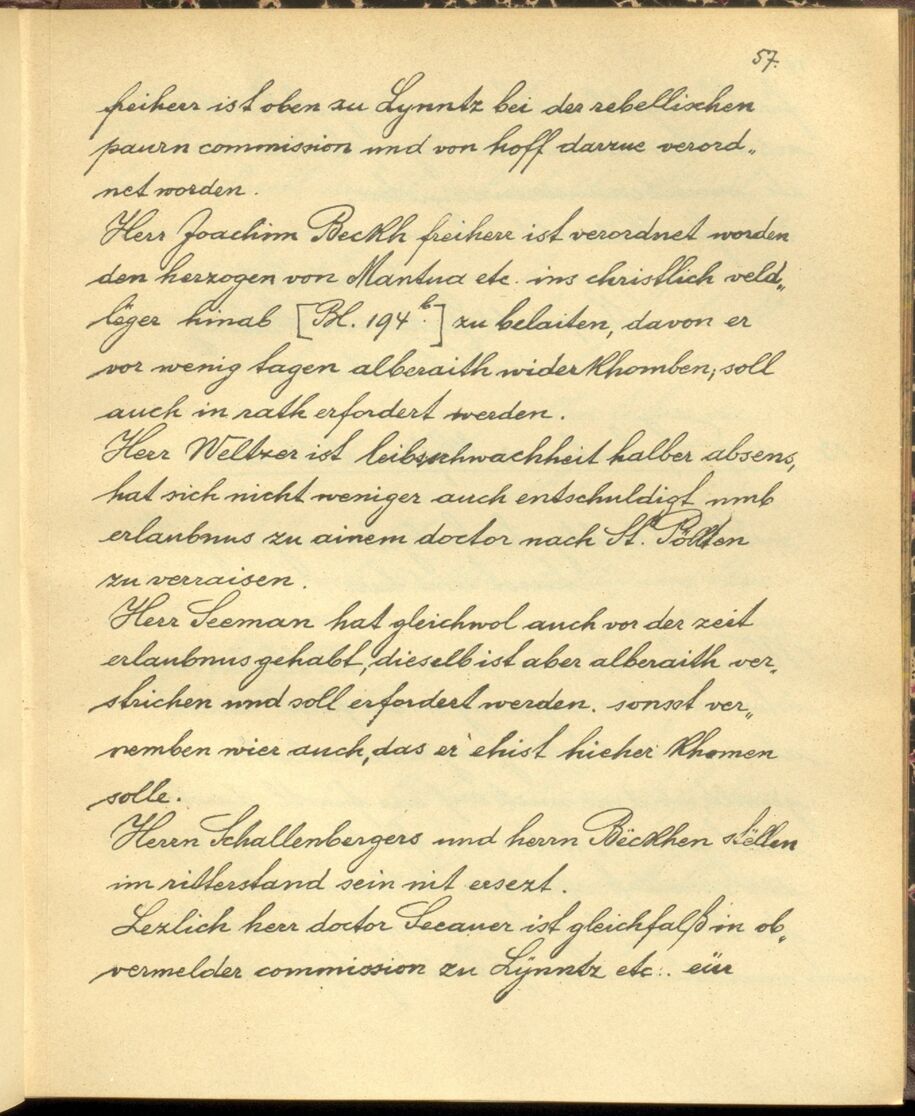 57.
freiherr ist oben zu Lynntz bei der rebellischen
paurn commission und von hoff darzue verord„
net worden.
Herr Joachim Beckh freiherr ist verordnet worden
den herzogen von Mantua etc. ins christlich veld„
léger hinab [Bl. 194 b.] zu belaiten, davon er
vor wenig tagen alberaith widerkhomben; soll
auch in rath erfordert werden.
Herr Weltzer ist leibsschwachheit halber absens,
hat sich nicht weniger auch entschuldigt umb
erlaubnus zu ainem doctor nach St. Pöllten
zu verraisen.
Herr Seeman hat gleichwol auch vor der zeit
erlaubnus gehabt, dieselb ist aber alberaith ver„
strichen und soll erfordert werden. sonsst ver„
nemben wier auch, das er ehist hieher khomen
solle.
Herrn Schallenbergers und herrn Bëckhen stëllen
im ritterstand sein nit ersezt.
Lezlich herr doctor Secauer ist gleichfalß in ob„
vermelder commission zu Lÿnntz etc. eür